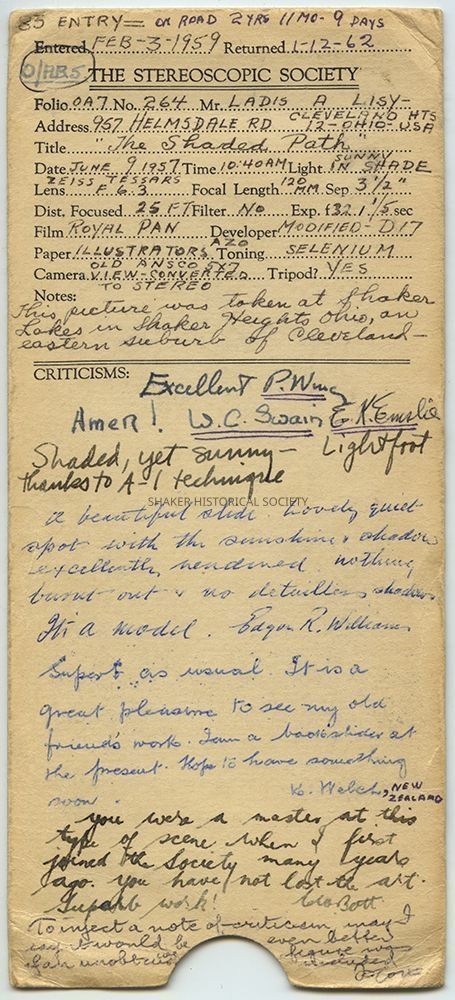 35 ENTRY = ON ROAD 2 YRS 11 MO - 9 DAYS
Entered FEB-3-1959 Returned 1-12-62
THE STEREOSCOPIC SOCIETY
Folio OA7 No. 264 Mr. LADIS A LISY-
Address 957 HELMSDALE RD CLEVELAND HTS 12-OHIO-USA
Title "The Shaded Path"
Date JUNE 9 1957 Time 10:40AM Light SUNNY IN SHADE
Lens ZEISS TESSARS F 6.3 Focal Length 120 MM Sep 3 1/2"
Dist. Focused 25 FT Filter No Exp. f32 1/5 sec
Film ROYAL PAN Developer MODIFIED-D17
Paper ILLUSTRATORS AZO Toning SELENIUM
Camera OLD ANSCO 5X7 VIEW-CONVERTED TO STEREO Tripod? YES
Notes:
This picture was taken at Shaker
Lakes in Shaker Heights Ohio, an
eastern suburb of Cleveland-
CRITICISMS:
Excellent P. Wing
Amen! W.C. Swain E.K. Emslie
Shaded, yet sunny- Lightfoot
thanks to A-1 technique
SHAKER HISTORICAL SOCIETY
A beautiful slide. Lovely quiet
spot with the sunshine & shadow
excellently rendered nothing
burnt out & no detailless shadows
It's a model. Edgar R. Williams
Superb as usual. It is a
great pleasure to see my old
friend's work. I am a backslider at
the present. Hope to have something
soon. K. Welch, NEW ZEALAND
You were a master at this
type of scene when I first
joined the Society many years
ago. You have not lost the art.
Superb work! Bott
To inject a note of criticism may I
say it would be even better
if an unobtrusive figure was
included